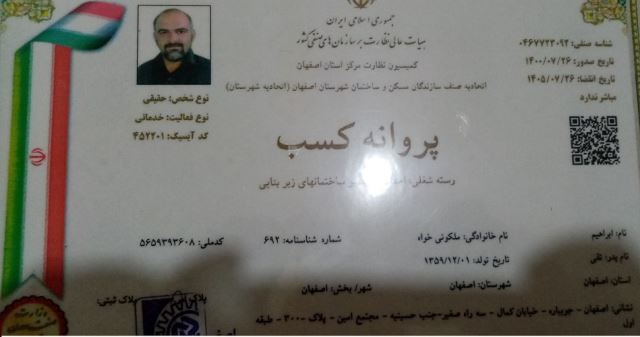 جمهوری اسلامی ایران
هیات عالی نظارت بر سازمان های صنفی کشور
کمیسیون نظارت مرکز استان اصفهان
اتحادیه صنف سازندگان مسکن و ساختمان شهرستان اصفهان (اتحادیه شهرستان)
شناسه صنفی: ۰۴۶۷۷۲۳۰۹۲
تاریخ صدور: ۱۴۰۰/۰۷/۲۶
تاریخ انقضا: ۱۴۰۵/۰۷/۲۶
مباشر ندارد
نوع شخص: حقیقی
نوع فعالیت: خدماتی
کد آیسیک: ۴۵۲۲۰۱
پروانه کسب
رسته شغلی: ساختمانهای زیر بنایی
نام: ابراهیم نام خانوادگی: ملکوتی خواه شماره شناسنامه: ۶۹۲ کدملی: ۵۶۵۹۳۹۳۶۰۸
نام پدر: تقی تاریخ تولد: ۱۳۵۹/۱۲/۰۱
استان: اصفهان شهرستان: اصفهان شهر/ بخش: اصفهان
نشانی: اصفهان - جریباره - خیابان کمال - سه راه صغیر-جنب حسینیه - مجتمع امین - پلاک ۳۰۰ - طبقه پلاک ثبتی:
اول
وزارت